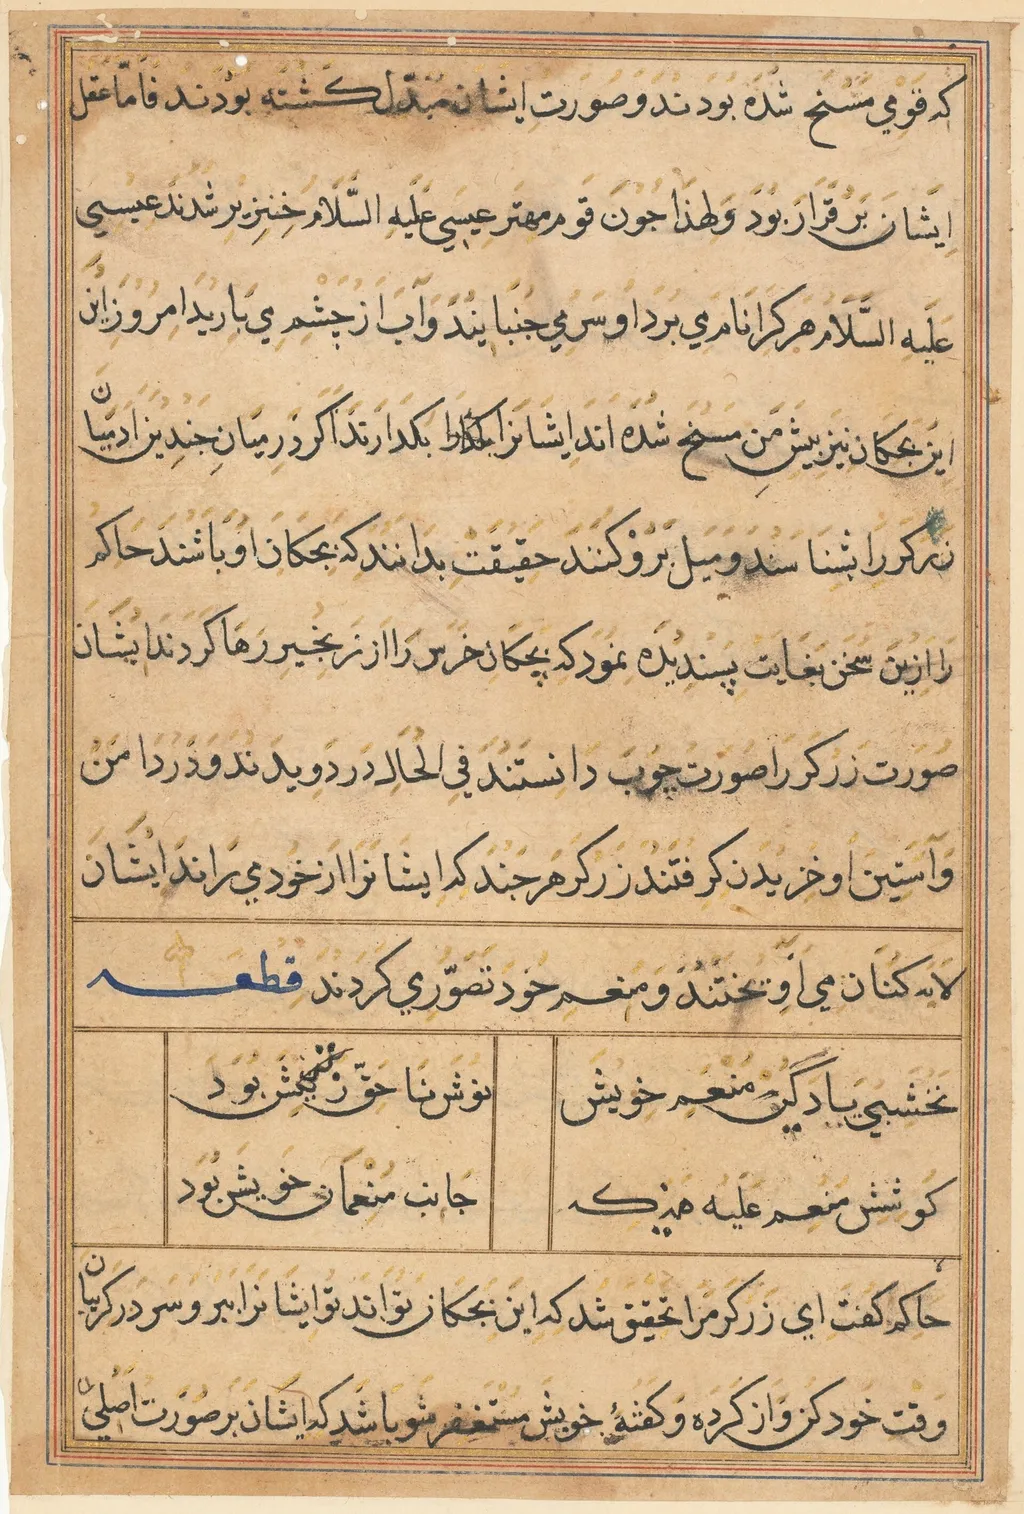 که قومی مسخ شده بودند و صورت ایشان مبدّل کشته بودند فامّا عقل
ایشان بر قرار بود و لهذا جون قوم مهتر عیسی علیه السّلام خنزیر شدند عیسی
علیه السّلام هر کرا نام می برد او سر می جنبایند و آب از چشم می بارید امروز این
این بجکان نیز بیش من مسخ شده اند ایشانرا بکدارند اکر در میان جندین ادمیان
زرکر را بشناسند و میل برو کنند حقیقت بدانند که بجکان او باشند حاکم
را ازین سخن بغایت پسندیده نمود که بچکان خرس را از زنجیر رها کردند ایشان
صورت زرکر را صورت چوب دانستند فی الحال در دویدند و در دامن
و آستین او خزیدن کرفتند زرکر هر جند که ایشانرا از خود می راند ایشان
لابه کنان می آویختند و منعم خود تصوّری کردند قطعه
نخشبی یاد گیر منعم خویش
نوش ما حقّ نیش بود
کوشش منعم علیه هر یک
جانب منعمان خویش بود
حاکم کفت ای زرکر مرا تحقیق شد که این بجکان تواند تو ایشانرا ببر و سر در کریبان
وقت خود کن و از کرده و کفتهٔ خویش مستغفر شو باشد که ایشان بر صورت اصلی